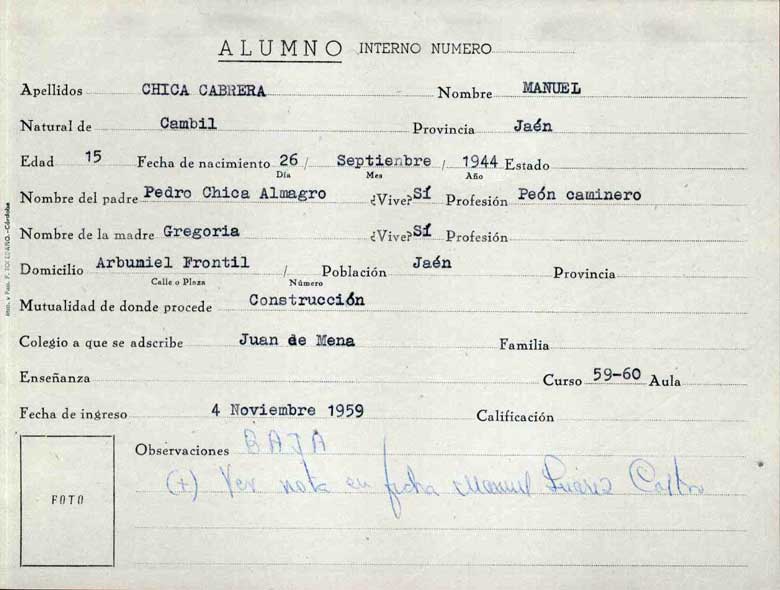 ALUMNO INTERNO NUMERO
Apellidos CHICA CABRERA Nombre MANUEL
Natural de Cambil Provincia Jaén
Edad 15 Fecha de nacimiento 26 / Septienbre / 1944 Estado
Día Mes Año
Nombre del padre Pedro Chica Almagro ¿Vive? Sí Profesión Peón caminero
Nombre de la madre Gregoria ¿Vive? Sí Profesión
Domicilio Arbuniel Frontil / Población Jaén Provincia
Calle o Plaza Número
Mutualidad de donde procede Construcción
Colegio a que se adscribe Juan de Mena Familia
Enseñanza Curso 59-60 Aula
Fecha de ingreso 4 Noviembre 1959 Calificación
Observaciones BAJA
(+) Ver nota en ficha Manuel Suárez Castro
FOTO